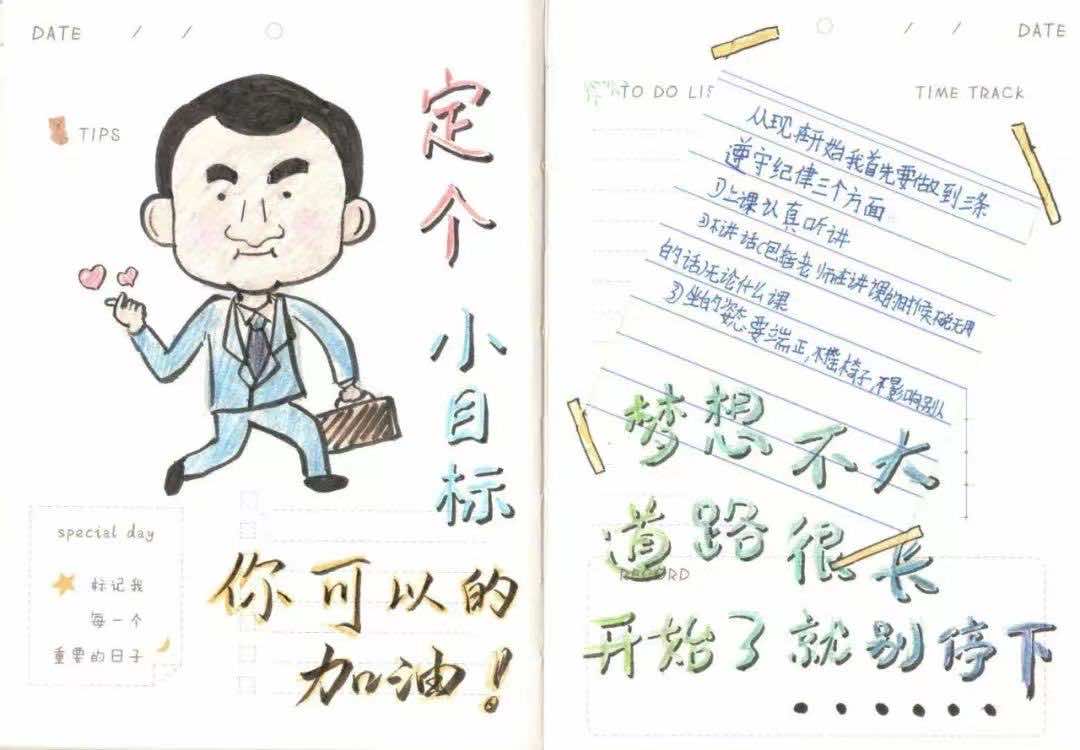 DATE / /
TIPS
定个小目标
special day
标记我
每一个
重要的日子
你可以的
加油！
/ / DATE
TO DO LIS
TIME TRACK
从现在开始我首先要做到三条
遵守纪律三个方面
①上课认真听讲
②不讲话(包括老师在讲课的时候不说无用
的话)无论什么课
③坐的姿态要端正,不摇椅子,不影响别人
梦想不大
道路很长
RECORD
开始了就别停下
······